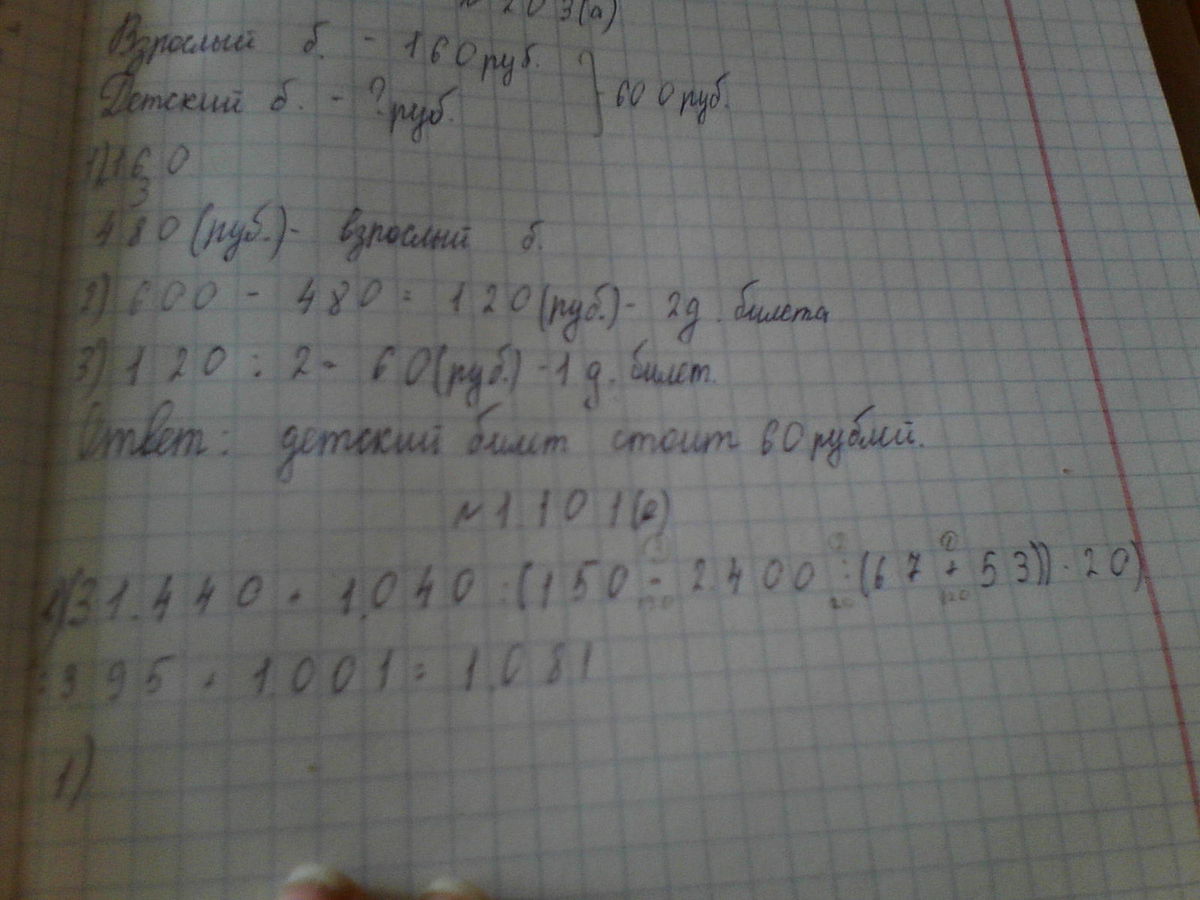 № 203(а)
Взрослый б. - 160 руб.
Детский б. - ? руб. } 600 руб.
1) 160
3
480 (руб.) - взрослый б.
2) 600 - 480 = 120 (руб.) - 2 д. билета
3) 120 : 2 = 60 (руб.) - 1 д. билет.
Ответ: детский билет стоит 60 рублей.
№ 1.101(а)
(31.440 + 1.040 : (150 - 2400 : (67 + 53)) · 20)
: 395 + 1001 = 1.081
1)